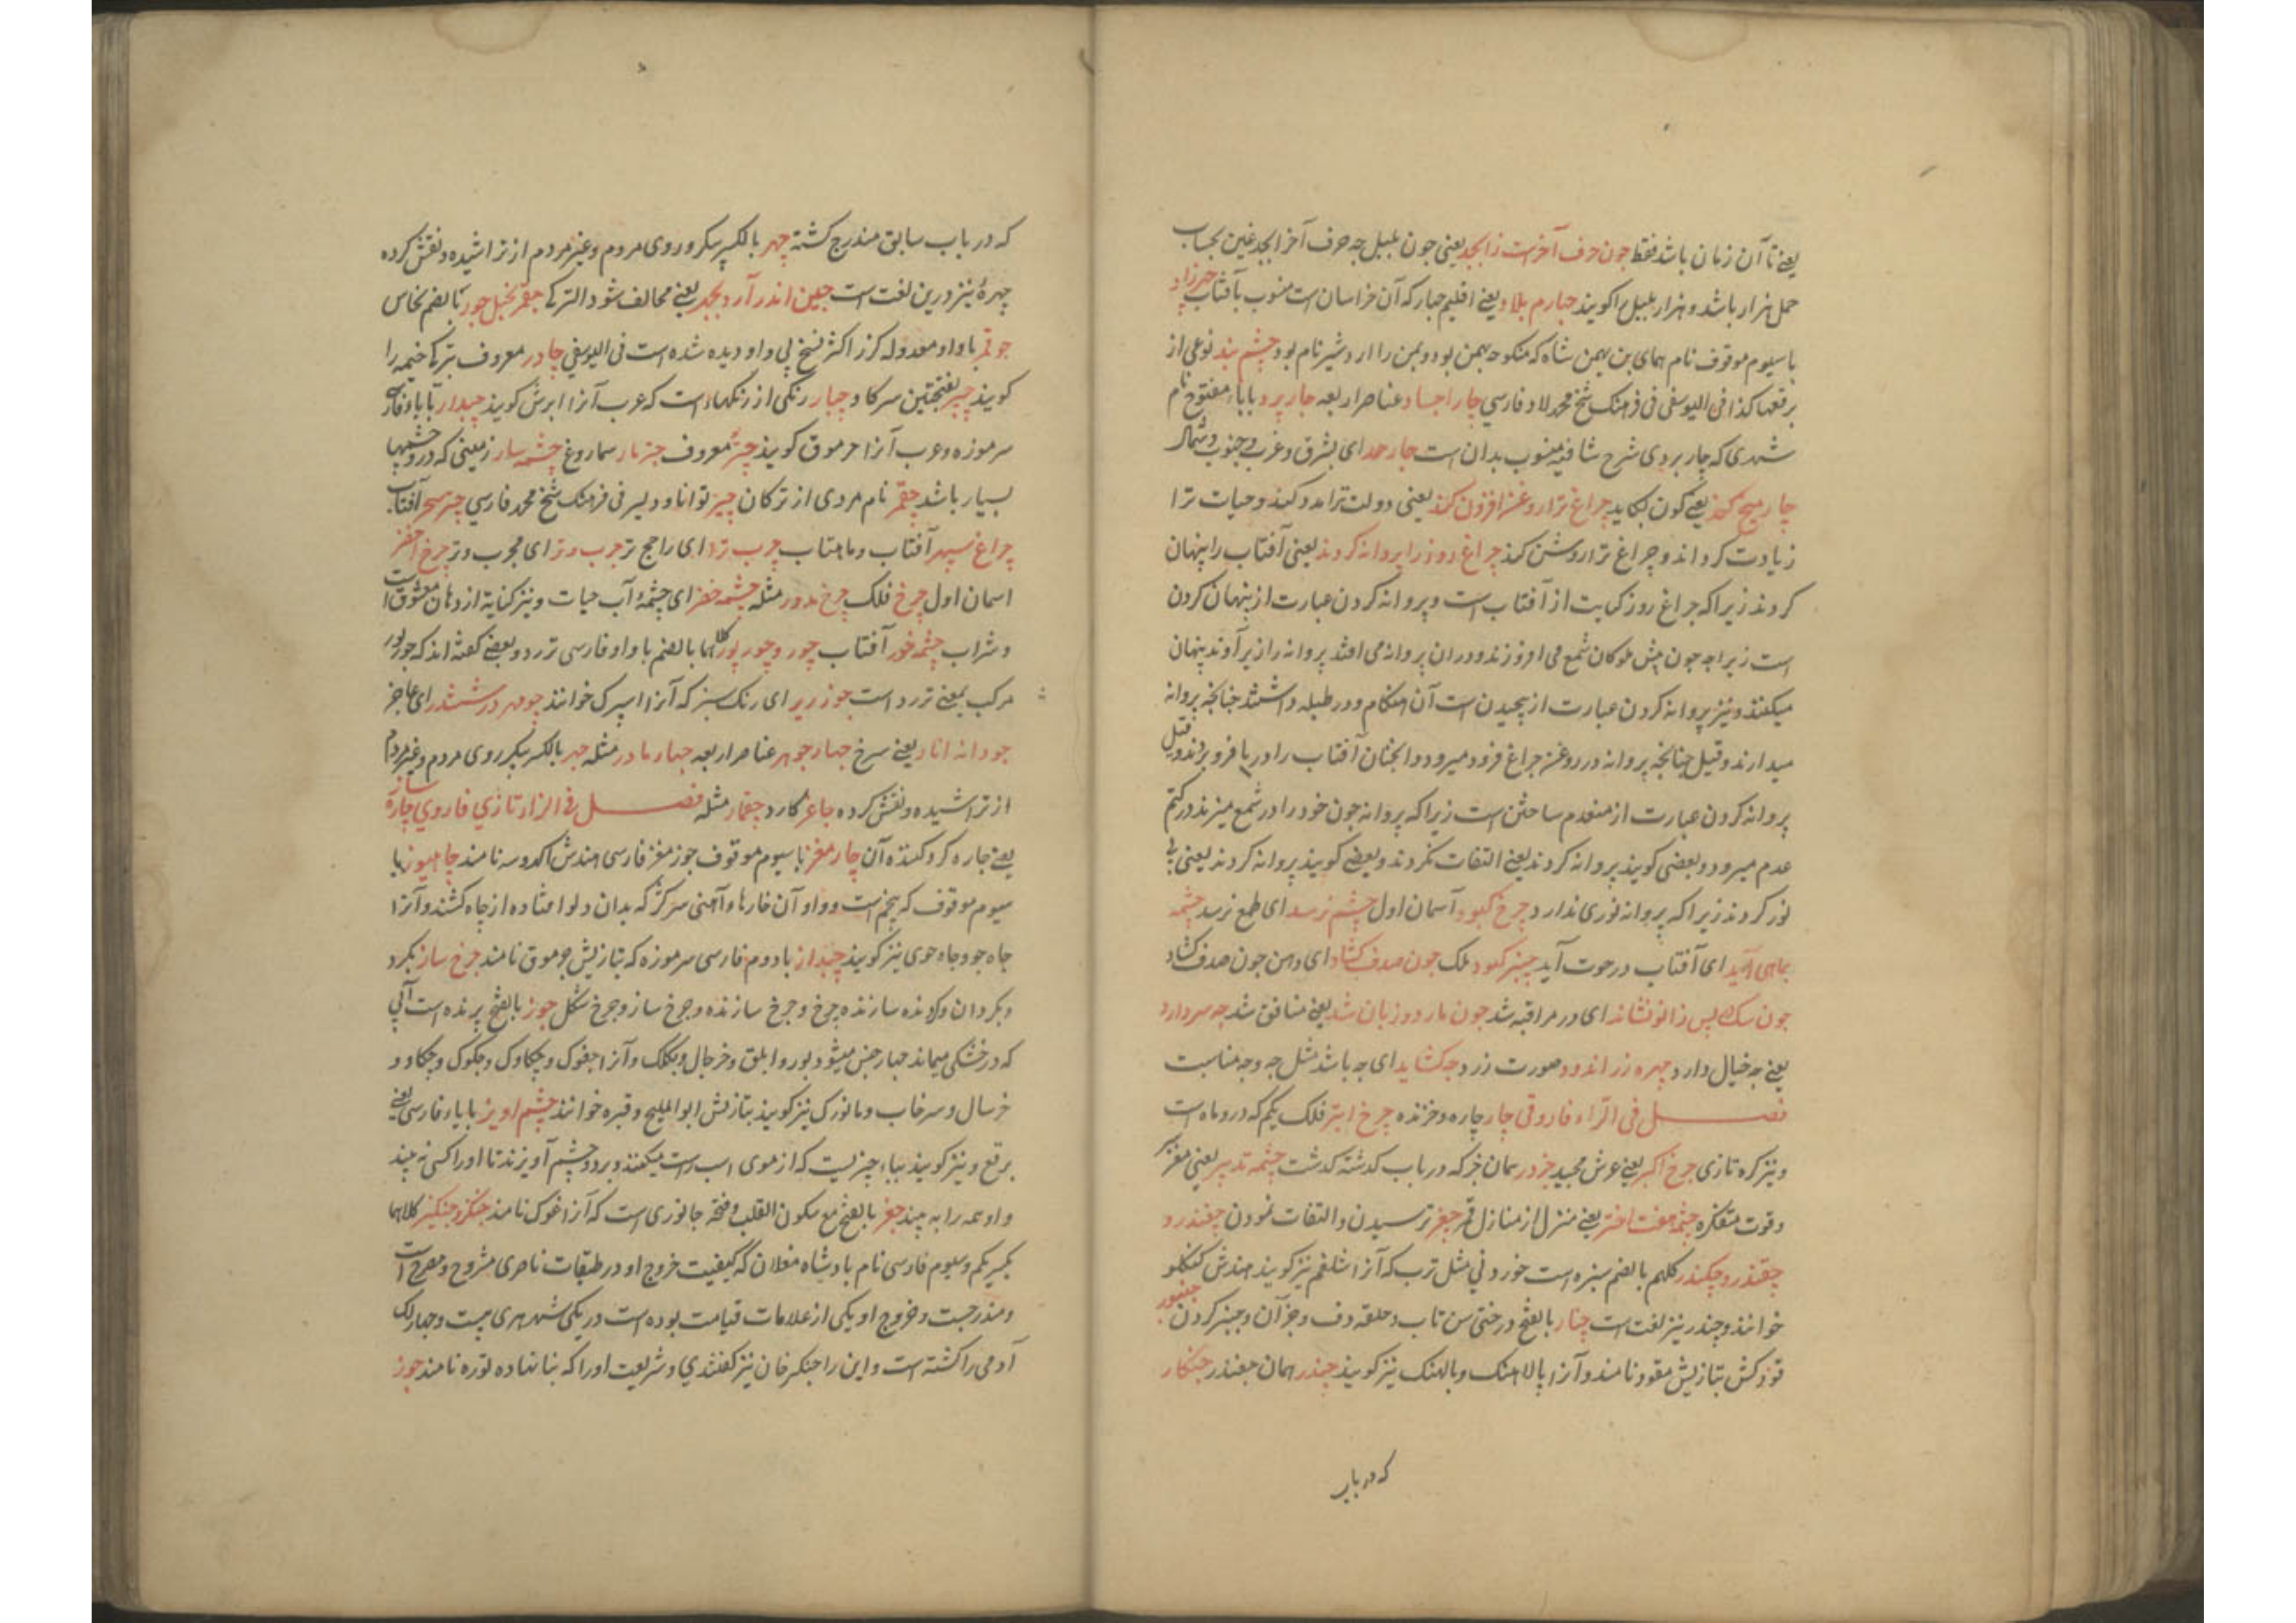 یعنے تا آن زبان باشد فقط چون حرف آخرست ز ابجد یعنی چون بلبل چه حرف آخر ابجد غین بحساب
جمل هزار باشد و هزار بلبل را کویند چهارم بلاد یعنے اقلیم چهار که آن خراسان است منسوب بآفتاب چهرزاد
با سیوم موقوف نام همای بن بهمن شاه که منکوحه بهمن بود و بهمن را اردشیر نام بود چشم بند نوعی از
برقعها کذا فی الیوسفی فی فرهنک شیخ محمد لاد فارسی چار اجساد عناصر اربعه چار برد بابا مفتوح نام
شهری که چاربردی شرح شافیه منسوب بدان است چار حد ای بشرق و غرب و جنوب و شمال
چار میخ کند یعنے کون بکاید چراغ ترا روغن افزون کند یعنی دولت ترا مدد کند و حیات ترا
زیادت کرداند و چراغ ترا روشن کند چراغ روز را پروانه کردند یعنی آفتاب را پنهان
کردند زیرا که چراغ روز کنایت از آفتاب است و پروانه کردن عبارت از پنهان کردن
است زیراچه چون پیش ملوکان شمع می افروزند و دران پروانه می افتد پروانه را زیر آوند پنهان
میکنند و نیز پروانه کردن عبارت از پیچیدن است آن هنکام و در طبله داشتند چنانچه پروانه
میدارند و قیل چنانچه پروانه در روغن چراغ فرود میرود و آنچنان آفتاب را در یا فرو بردند و قیل
پروانه کردن عبارت از منعدم ساختن است زیرا که پروانه چون خود را در شمع میزند در کتم
عدم میرود و بعضی کویند پروانه کردند یعنے التفات نکردند و بعضے کویند پروانه کردند یعنی بی
نور کردند زیرا که پروانه نوری ندارد چرخ کبود آسمان اول چشم نرسد ای طمع نرسد چشمه
بماهی آید ای آفتاب در حوت آید چنبر کبود ملک چون صدف کشاد ای دهن چون صدف کشاد
چون سک پس زانو نشاند ای در مراقبه شد چون مار دو زبان شد یعنے منافق شد چه سر دارد
یعنے چه خیال دارد چهره زر اندود صورت زرد چه کشاید ای چه باشد مثل چه و چه مناسبت
فصل فی الرّاء فاروقی چار چاره و خزنده چرخ ابتر فلک یکم که درو ماه است
و نیز کره تازی چرخ اکبر یعنے عرش مجید چزدر همان خر که در باب کذشته کذشت چشمه تدبیر یعنی مغز
و قوت متفکره چشمه هفت اختر یعنے منزل از منازل قمر چغر ترسیدن و التفات نمودن چغندر و
چقندر و چکندر کلهم بالضم سبزه است خوردنی مثل ترب که آنرا شلغم نیز کویند هندش کنکلو
خوانند و چندر نیز لغت است چنار بالفتح درختی سن تاب و حلقه دف و جز آن و چنبر کردن چنبور
قود کش بتازیش مقود نامند و آنرا پالاهنک و بالهنک نیز کویند چندر همان چغندر چنکار
که در باب
که در باب سابق مندرج کشته چهر بالکسر پیکر و روی مردم و غیر مردم از تراشیده و نقش کرده
چهرهٔ نیز درین لغت است چین اندر آرد بخد یعنے مخالف شود الترکے چقر نجیل چور تا بالضم نخاس
چوقر با واو معدوله کرز اکثر نسخ بی واو دیده شده است فی الیوسفی چادر معروف بترکے خیمه را
کویند چبر بفتحتین سرکا و چپار رنکی از رنکهاء است که عرب آنرا ابرش کویند چپدار با باء فارسے
سرموزه و عرب آنرا جرموق کویند چتر معروف چتر مار سماروغ چشمه سار زمینی که درو چشمها
بسیار باشد چقر نام مردی از ترکان چیر توانا و دلیر فی فرهنک شیخ محمد فارسی چتر سحر آفتاب
چراغ سپهر آفتاب و ماهتاب چرب ترا ای راجح تر چرب و تر ای مجرب و تر چرخ اخضر
اسمان اول چرخ فلک چرخ مدور مثله چشمه خضر ای چشمهٔ آب حیات و نیز کنایة از دهان معشوق است
و شراب چشمه خور آفتاب چور و چور پور کلاهما بالضم با واو فارسی تزرد و بعضے کفته اند که چورپور
مرکب بمعنے تزرد است چوز ریر ای رنک سبز که آنرا اسپرک خوانند چو مهر در ششدر ای عاجز
چو دانه انار یعنے سرخ چهار جوهر عناصر اربعه چهار مادر مثله چهر بالکسر پیکر روی مردم و غیر مردم
از تراشیده و نقش کرده چاغر کارد چقمار مثله فصل فی الزاء تازی فاروقی چاره ساز
یعنے چاره کر و کننده آن چار مغز با سیوم موقوف جوز مغز فارسی هندش اکدوسه نامند چاهیوز با
سیوم موقوف که پنجم است و واو آن خارها و آهنی سرکژ که بدان دلو افتاده از چاه کشند و آنرا
چاه جو و چاه جوی نیز کویند چپدار با دوم فارسی سرموزه که بتازیش جرموق نامند چرخ ساز بکرد
و بکردان و کرنده سازنده چرخ و چرخ سازنده و چرخ ساز و چرخ شکل چرز بالفتح پرنده است آبی
که در خشکی میماند چهار جنس میشود بور و ابلق و خرچال و بکلک و آنرا چغوک و چکاوک و چکوک و چکاو و
خرسال و سرخاب و مانورک نیز کویند بتازیش ابو الملیح و قبره خوانند چشم اویز با یاء فارسی یعنے
برقع و نیز کویند بباء چیزیست که از موی اسب راست میکنند و بر دو چشم آویزند تا اورا کسی نه بیند
و او همه را به بیند چغز بالفتح مع سکون القلب و فتحه جانوری است که آنرا غوک نامند چنکز و چنکیز کلاهما
بکسر یکم و سیوم فارسی نام پادشاه مغلان که کیفیت خروج او در طبقات ناصری مشروح و مصرح است
و مندرجست و خروج او یکی از علامات قیامت بوده است در یکی شهر هری بیست و چهار لک
آدمی را کشته است و این را چنکز خان نیز کفتندی و شریعت اورا که بنا نهاده توره نامند چوز